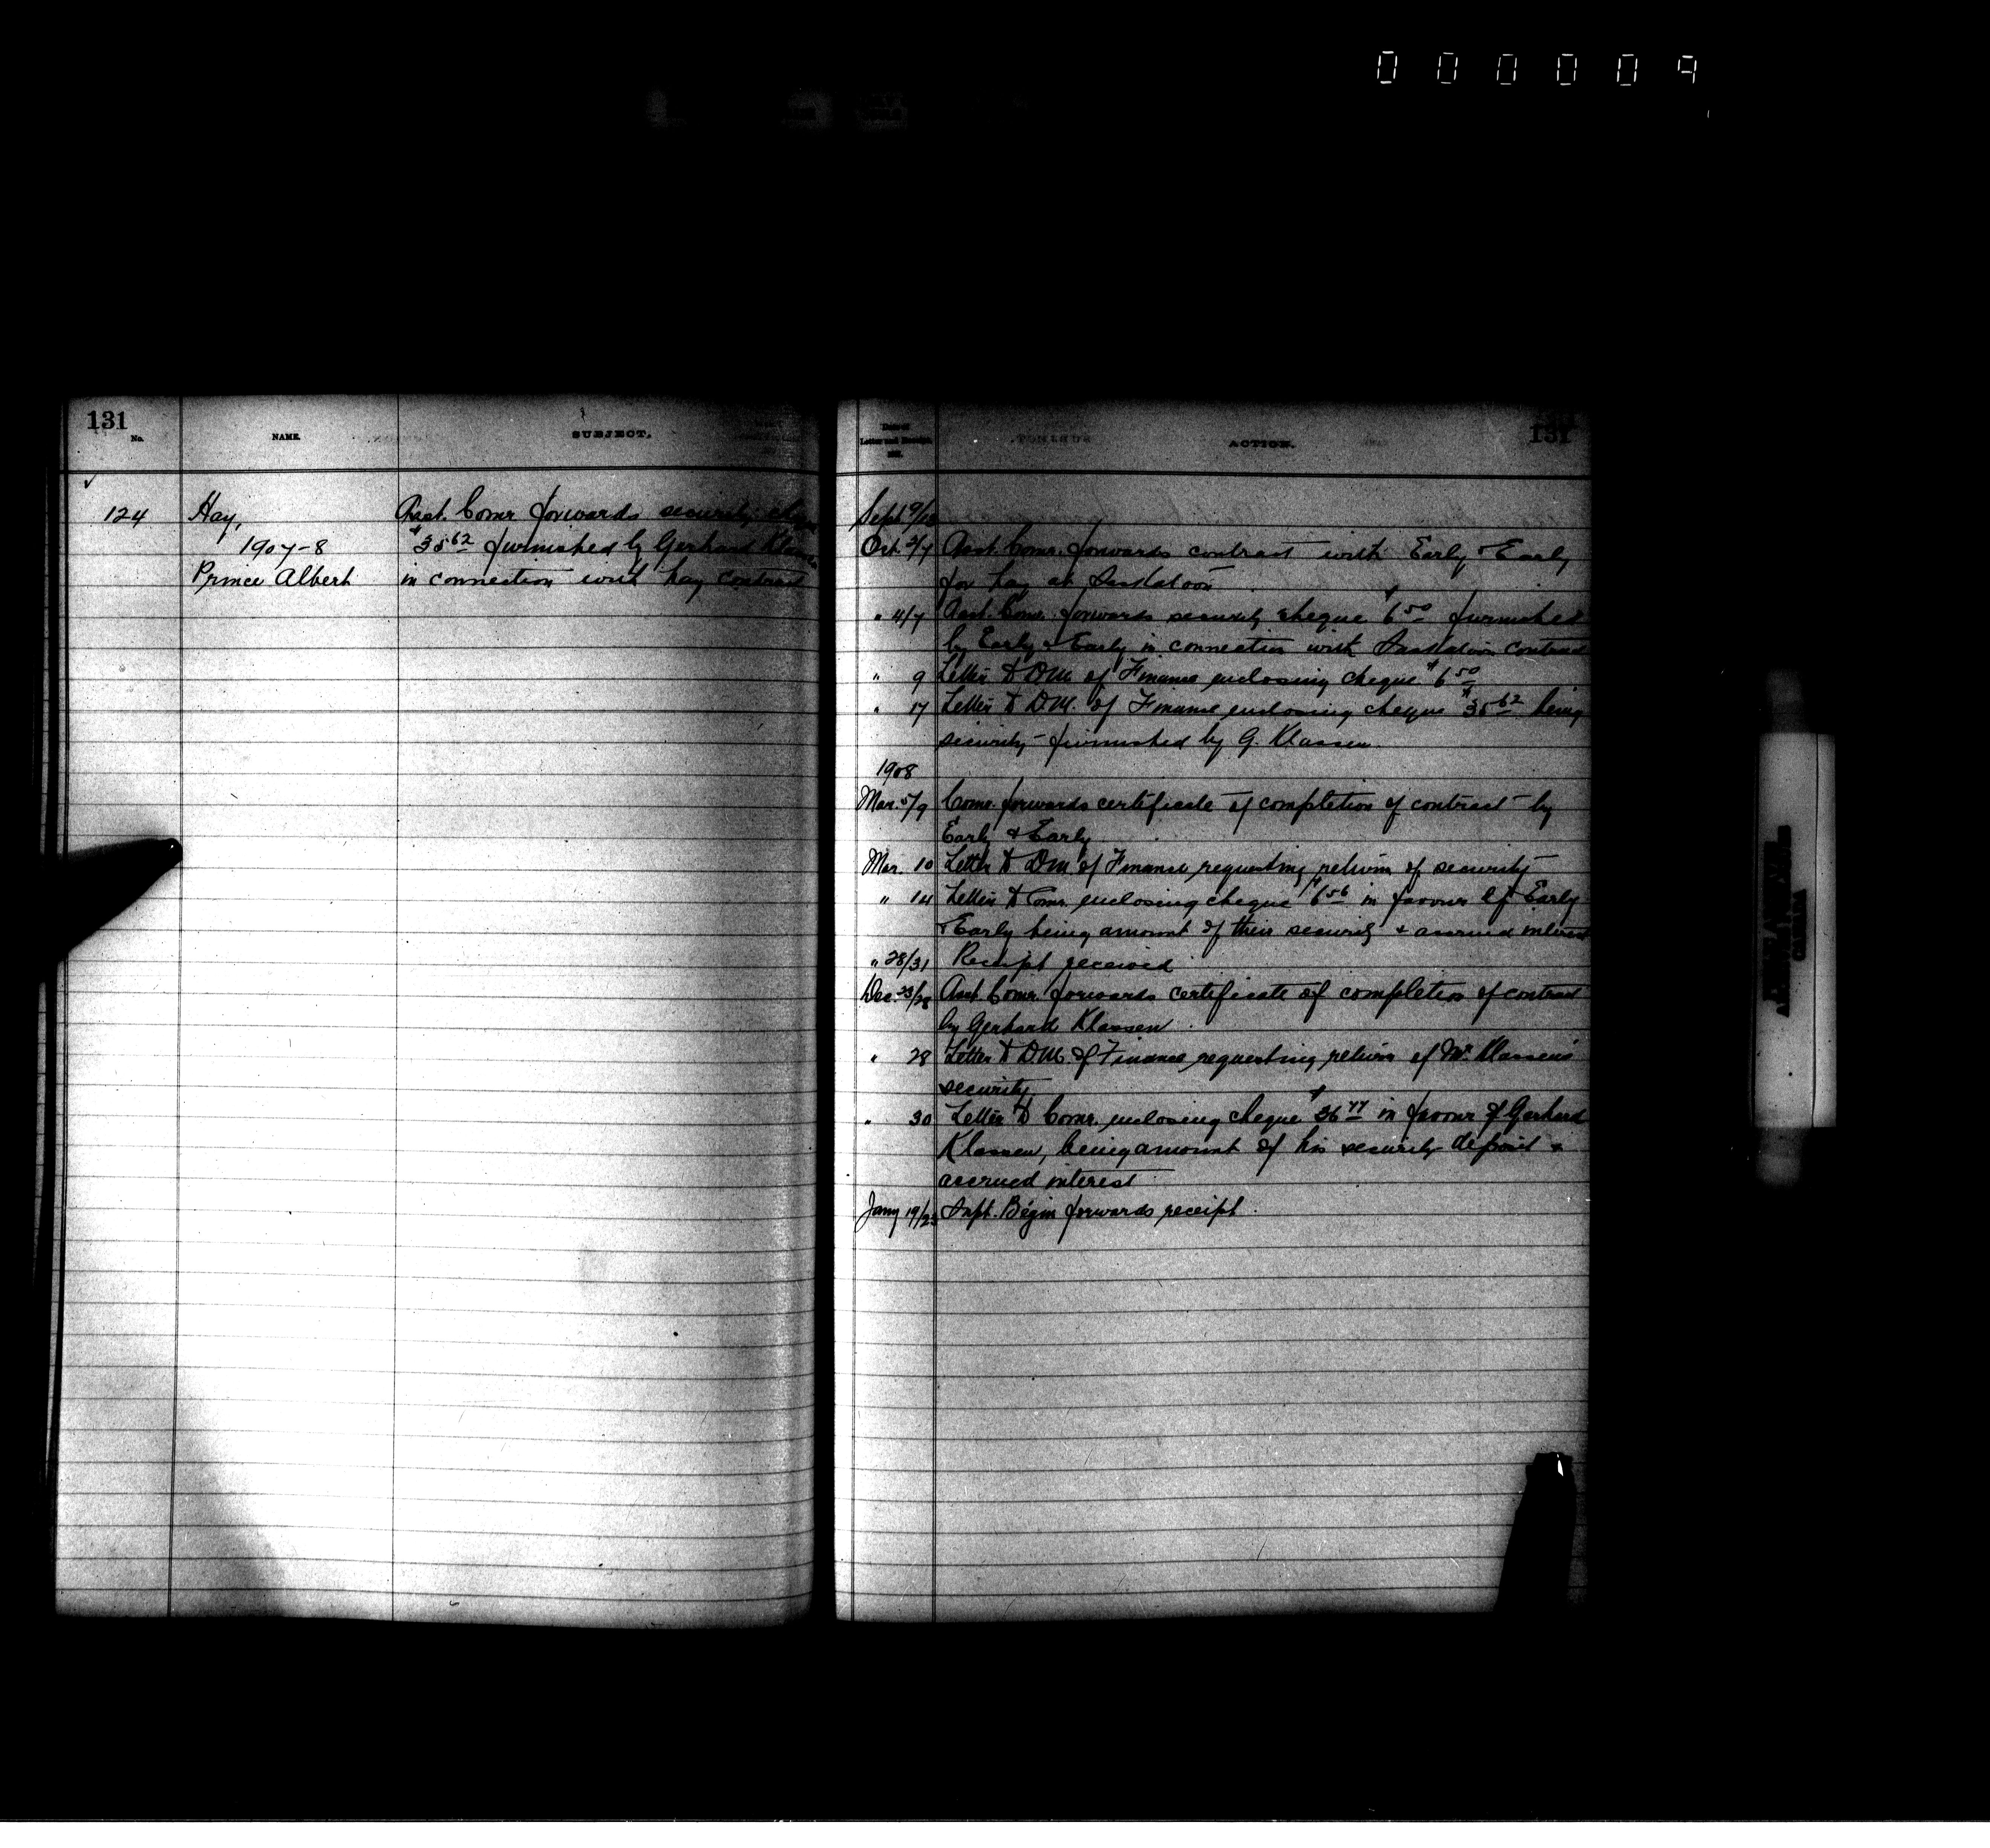 000009
131
No.
NAME.
SUBJECT.
124
Hay,
1907-8
Prince Albert
Asst. Comr forwards security cheque
$35.62 furnished by Gerhard Klassen
in connection with hay contract
Date of
Letter and Receipt.
ACTION.
131
Sept 9/13
Oct. 2/7 Asst. Comr. forwards contract with Early & Early
for hay at Saskatoon
" 4/7 Asst. Comr. forwards security cheque $6.50 furnished
by Early & Early in connection with Saskatoon contract
" 9 Letter to D.M. of Finance enclosing cheque $6.50
" 17 Letter to D.M. of Finance enclosing cheque $35.62 being
security furnished by G. Klassen.
1908
Mar. 5/9 Comr. forwards certificate of completion of contract by
Early & Early
Mar. 10 Letter to D.M. of Finance requesting return of security
" 14 Letter to Comr. enclosing cheque $6.56 in favour of Early
& Early being amount of their security & accrued interest
" 28/31 Receipt received
Dec. 23/28 Asst Comr. forwards certificate of completion of contract
by Gerhard Klassen.
" 28 Letter to D.M. of Finance requesting return of Mr. Klassen's
security
" 30 Letter to Comr. enclosing cheque $36.77 in favour of Gerhard
Klassen, being amount of his security deposit &
accrued interest
Jany 19/23 Supt. Begin forwards receipt.